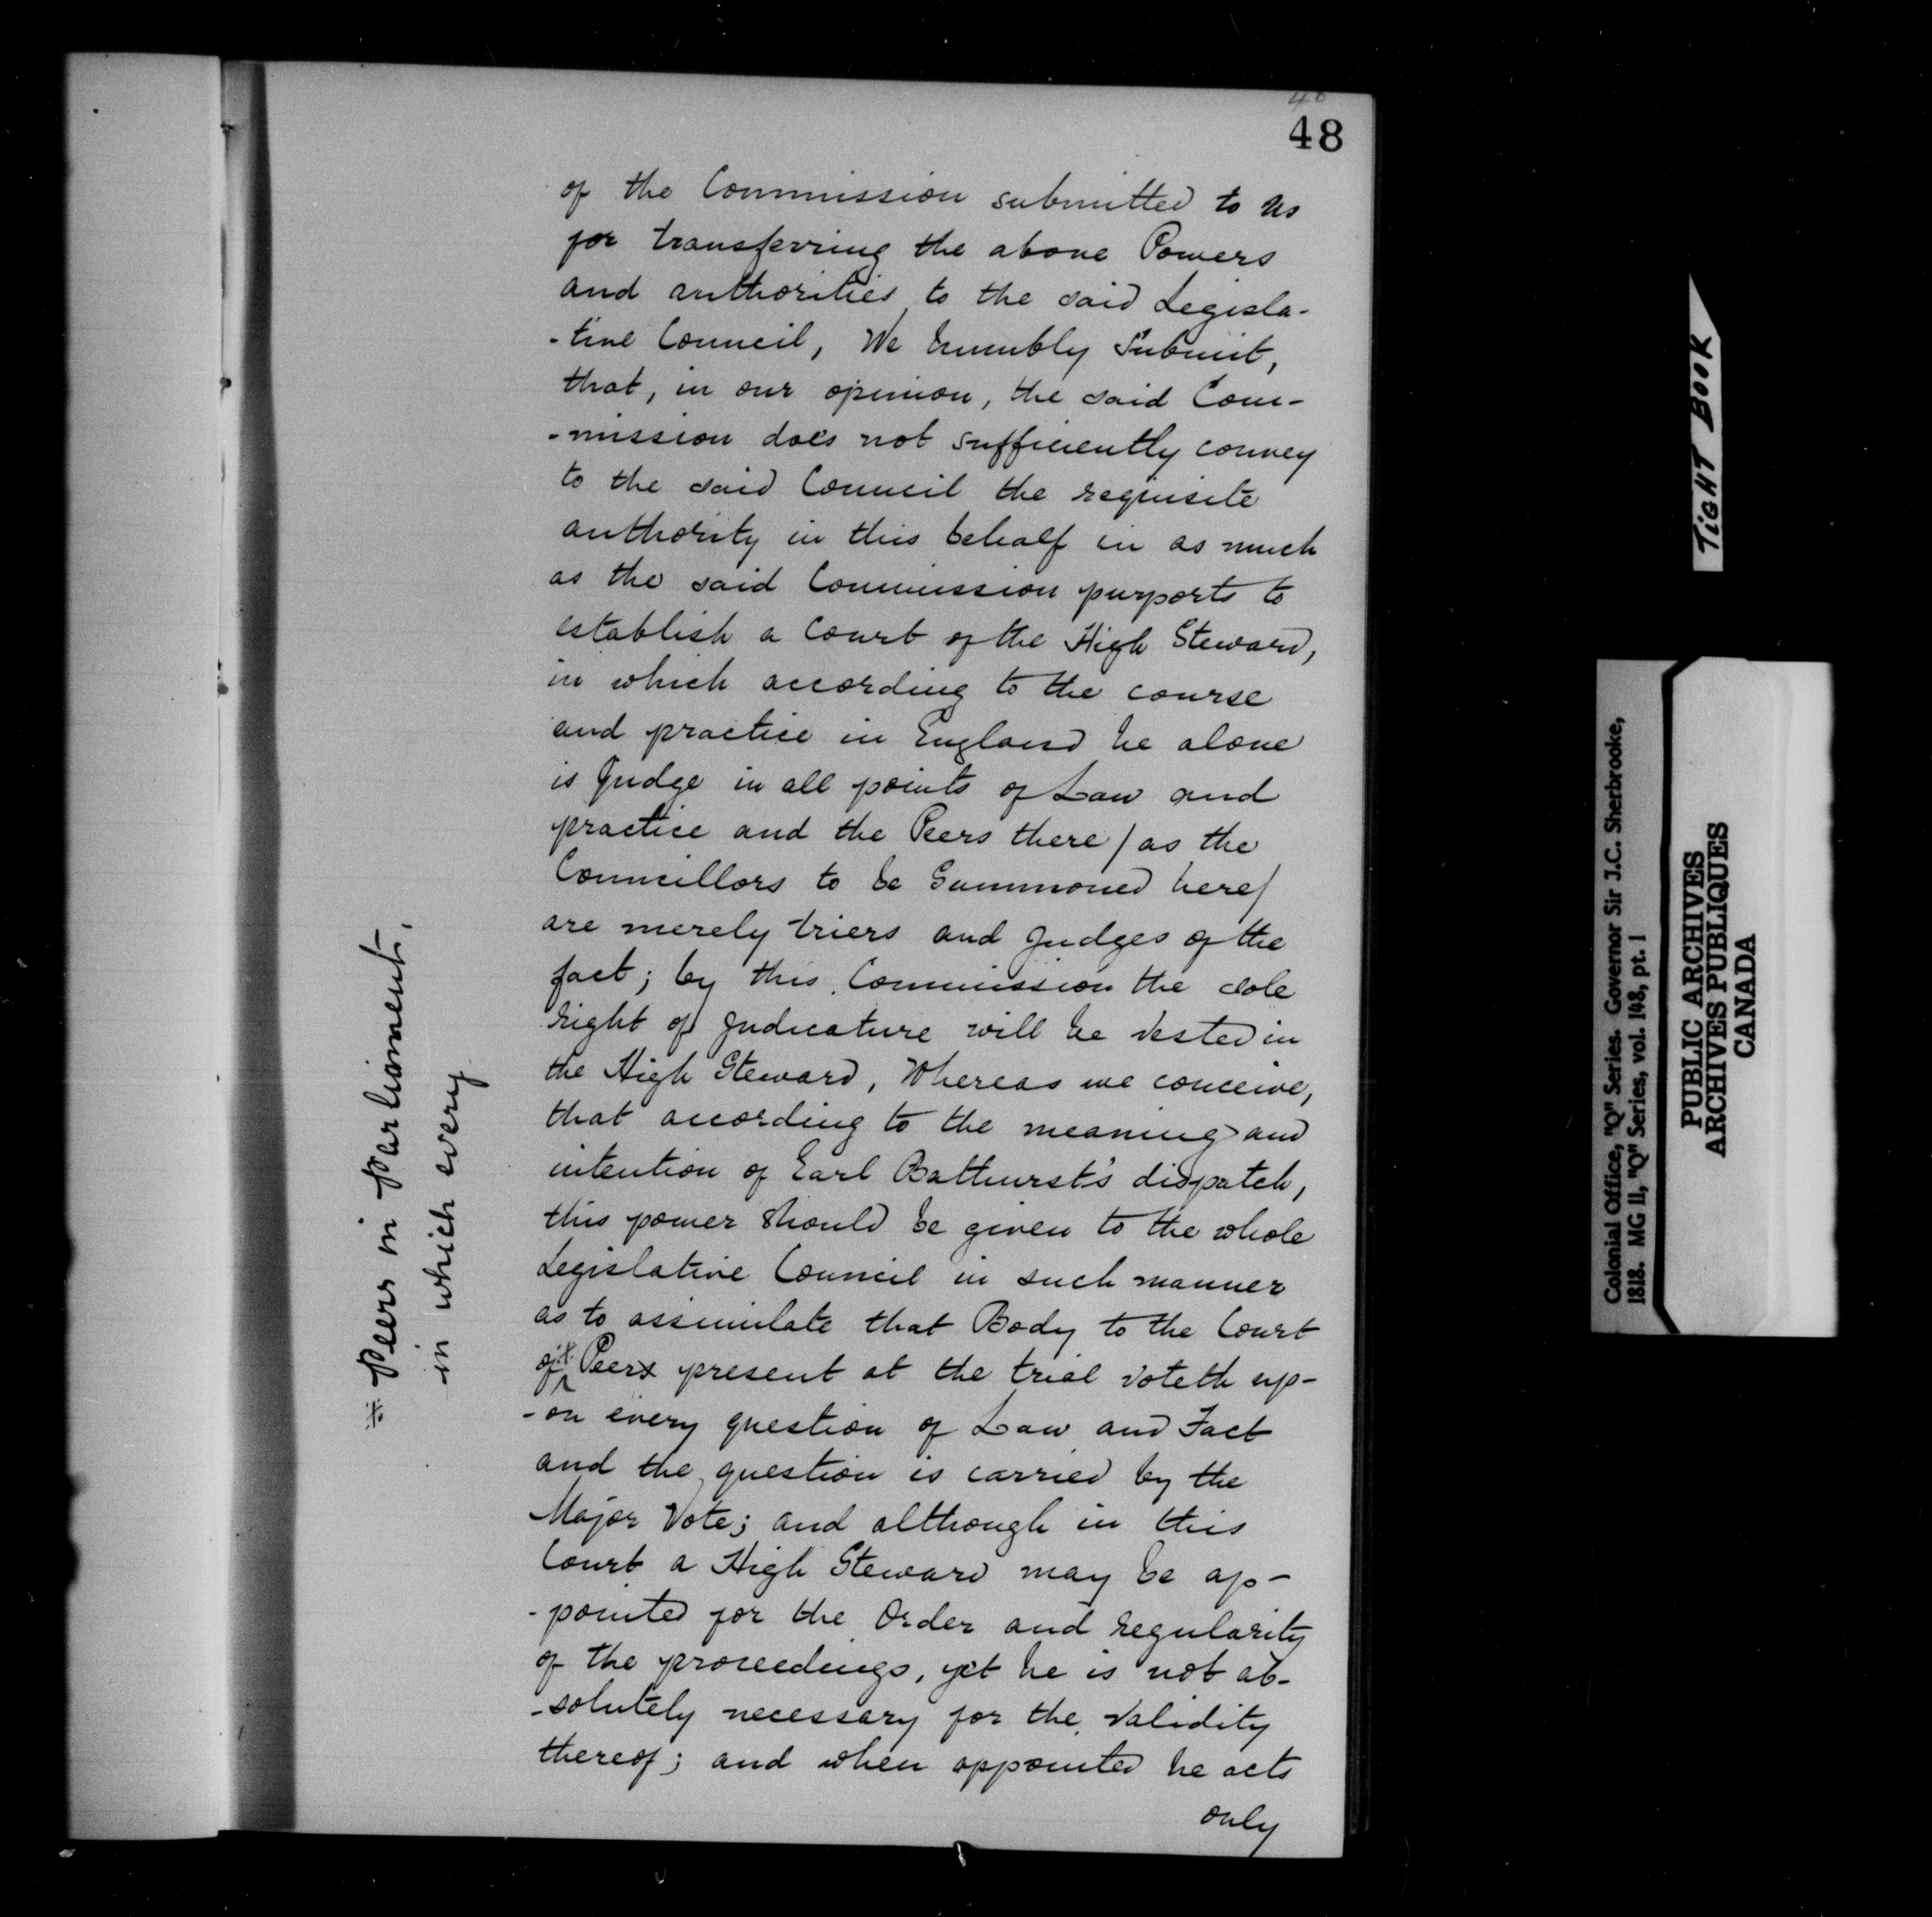 48
48
of the Commission submitted to us
for transferring the above Powers
and authorities to the said Legisla-
-tive Council, We humbly Submit,
that, in our opinion, the said Com-
-mission does not sufficiently convey
to the said Council the requisite
authority in this behalf in as much
as the said Commission purports to
establish a Court of the High Steward,
in which according to the course
and practice in England he alone
is Judge in all points of Law and
practice and the Peers there / as the
Councillors to be Summoned here/
are merely triers and Judges of the
fact; by this Commission the sole
right of Judicature will be vested in
the High Steward, Whereas we conceive,
that according to the meaning and
intention of Earl Bathurst's dispatch,
this power should be given to the whole
Legislative Council in such manner
as to assimilate that Body to the Court
of * Peers present at the trial voteth up-
-on every question of Law and Fact
and the question is carried by the
Major Vote; and although in this
Court a High Steward may be ap-
-pointed for the Order and regularity
of the proceedings, yet he is not ab-
-solutely necessary for the validity
thereof; and when appointed he acts
only
* Peers in Parliament,
in which every
TIGHT BOOK
Colonial Office, "Q" Series. Governor Sir J.C. Sherbrooke,
1818. MG II, "Q" Series, vol. 148, pt. I
PUBLIC ARCHIVES
ARCHIVES PUBLIQUES
CANADA